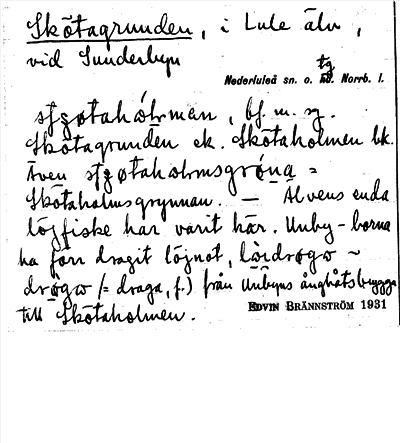 Skötagrunden, i Lule älv,
vid Sundesbyn
tg
Nederluleå sn. o. hd. Norrb. l.
sfʒøtahólman, bf. m. sg.
Skötagrunden ek. Skötaholmen bk.
Även sfʒøtahólmsgrö́na =
Skötaholmsgrynnan. — Älvens enda
löjfiske har varit här. Unby-borna
ha förr dragit löjnot, löidrøgw ~
drøgw (= draga, f.) från Unbyns ångbåtsbrygga
till Skötaholmen.
EDVIN BRÄNNSTRÖM 1931